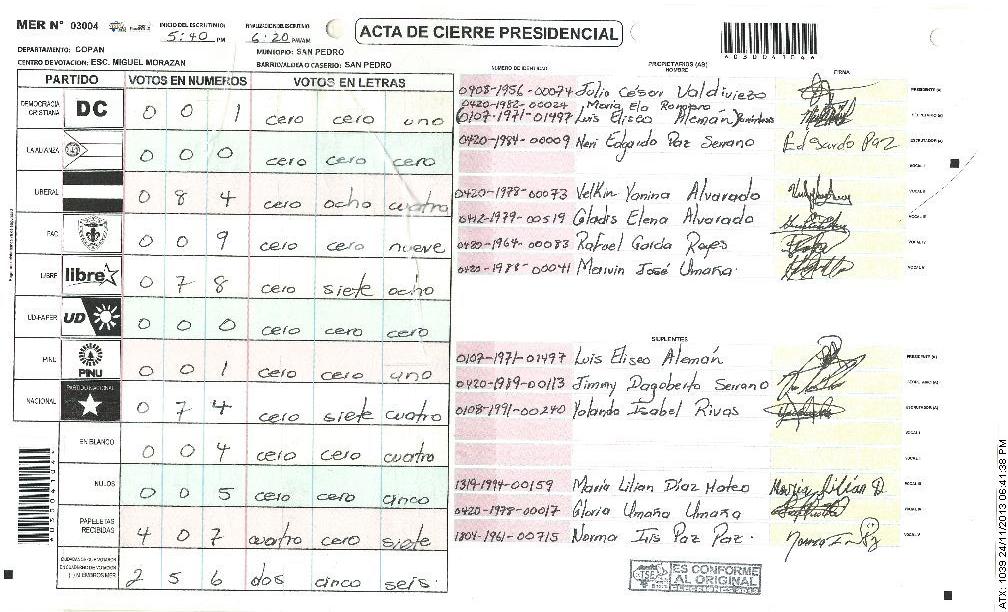 MER N° 03004
INICIO DEL ESCRUTINIO: 5:40 PM
FINALIZACION DEL ESCRUTINIO: 6:20 PM/AM
ACTA DE CIERRE PRESIDENCIAL
DEPARTAMENTO: COPAN
MUNICIPIO: SAN PEDRO
CENTRO DE VOTACION: ESC. MIGUEL MORAZAN
BARRIO/ALDEA O CASERIO: SAN PEDRO
PARTIDO VOTOS EN NUMEROS VOTOS EN LETRAS
DEMOCRACIA CRISTIANA DC 0 0 1 cero cero uno
LA ALIANZA 0 0 0 cero cero cero
LIBERAL 0 8 4 cero ocho cuatro
PAC 0 0 9 cero cero nueve
LIBRE libre 0 7 8 cero siete ocho
UD-FAPER UD 0 0 0 cero cero cero
PINU PINU 0 0 1 cero cero uno
NACIONAL PARTIDO NACIONAL 0 7 4 cero siete cuatro
EN BLANCO 0 0 4 cero cero cuatro
NULOS 0 0 5 cero cero cinco
PAPELETAS RECIBIDAS 4 0 7 cuatro cero siete
2 5 6 dos cinco seis.
NUMERO DE IDENTIDAD PROPIETARIOS (AS) NOMBRE FIRMA
0408-1956-00074 Julio César Valdiviezo PRESIDENTE (A)
0420-1982-00024 Maria Ela Romero
0107-1971-01497 Luis Eliseo Alemán SECRETARIO (A)
0420-1984-00009 Neri Edgardo Paz Serrano Edgardo Paz ESCRUTADOR (A)
VOCAL I
0420-1978-00073 Velkin Yanina Alvarado VOCAL II
0412-1979-00519 Gladis Elena Alvarado VOCAL III
0420-1964-00083 Rafael Garcia Reyes VOCAL IV
0420-1988-00041 Marvin José Umaña. VOCAL V
SUPLENTES
0107-1971-01497 Luis Eliseo Alemán PRESIDENTE (A)
0420-1989-00113 Jimmy Dagoberto Serrano SECRETARIO (A)
0108-1991-00240 Yolanda Isabel Rivas ESCRUTADOR (A)
VOCAL I
VOCAL II
1319-1994-00159 Maria Lilian Díaz Mateo Maria Lilian D. VOCAL III
0420-1978-00017 Gloria Umaña Umaña VOCAL IV
1804-1961-00715 Norma Iris Paz Paz. VOCAL V
TSE
ES CONFORME AL ORIGINAL
ELECCIONES 2013
ATX: 1039 24/11/2013 06:41:38 PM